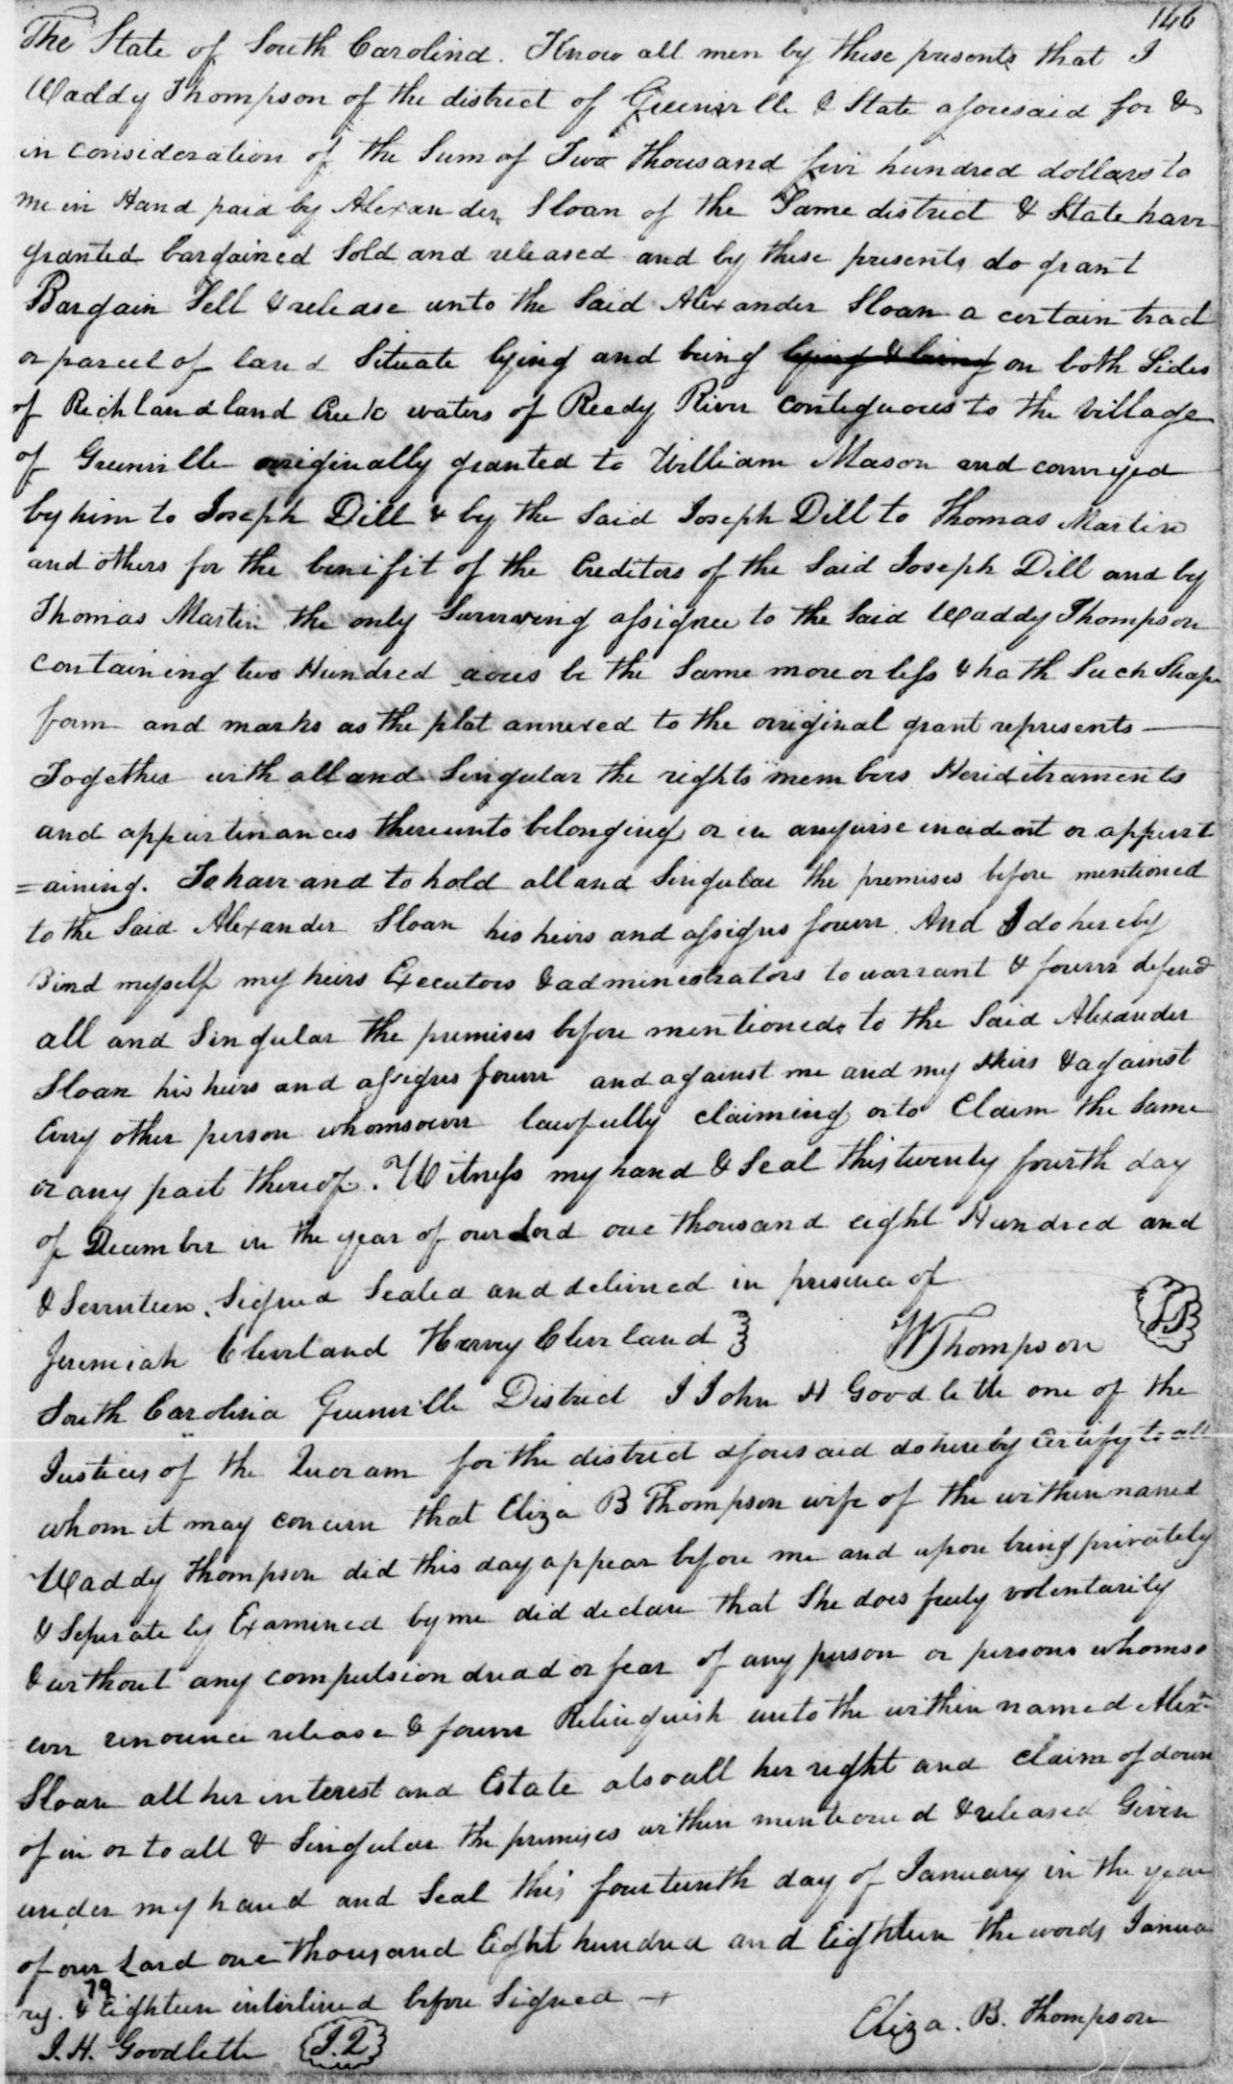 146
The State of South Carolina. Know all men by these presents that I
Waddy Thompson of the district of Greenville & State aforesaid for &
in consideration of the Sum of Two thousand five hundred dollars to
me in Hand paid by Alexander Sloan of the Same district & State have
granted bargained Sold and released and by these presents do grant
Bargain Sell & release unto the Said Alexander Sloan a certain tract
or parcel of land Situate lying and being lying & being on both Sides
of Richlandland Creek waters of Reedy River contiguous to the village
of Greenville originally granted to William Mason and conveyed
by him to Joseph Dill & by the Said Joseph Dill to Thomas Martin
and others for the benifit of the Creditors of the Said Joseph Dill and by
Thomas Martin the only Surviving assignee to the Said Waddy Thompson
containing two Hundred acres be the Same more or less & hath Such Shape
form and marks as the plat annexed to the original grant represents —
Together with all and Singular the rights members Heriditraments
and appurtinances thereunto belonging or in anywise incident or appurt
=aining. To have and to hold all and Singular the premises before mentioned
to the Said Alexander Sloan his heirs and assigns forever. And I do hereby
Bind myself my heirs Executors & administrators to warrant & forever defend
all and Singular the premises before mentioned to the Said Alexander
Sloan his heirs and assigns forever and against me and my Heirs & against
Every other person whomsoever lawfully claiming or to Claim the Same
or any part thereof. Witness my hand & Seal this twenty fourth day
of December in the year of our Lord one thousand eight Hundred and
& Seventeen. Signed Sealed and delivered in presence of
Jeremiah Cleveland Harvey Cleveland } W Thompson
South Carolina Greenville District I John H Goodlette one of the
Justices of the Quoram for the district aforesaid do hereby certify to all
whom it may concern that Eliza B Thompson wife of the within named
Waddy Thompson did this day appear before me and upon being privately
& Seperately Examined by me did declare that She does freely volentarily
& without any compulsion dread or fear of any person or persons whomso
=ever renounce release & forever Relinquish unto the within named Alexr
Sloan all her interest and Estate also all her right and claim of dower
of in or to all & Singular the premises within mentioned & released Given
under my hand and Seal this fourteenth day of January in the year
of our Lord one thousand Eight hundred and Eighteen the words Janua
ry. 79 & Eighteen interlined before Signed —
J.H. Goodlette J.Q Eliza. B. Thompson